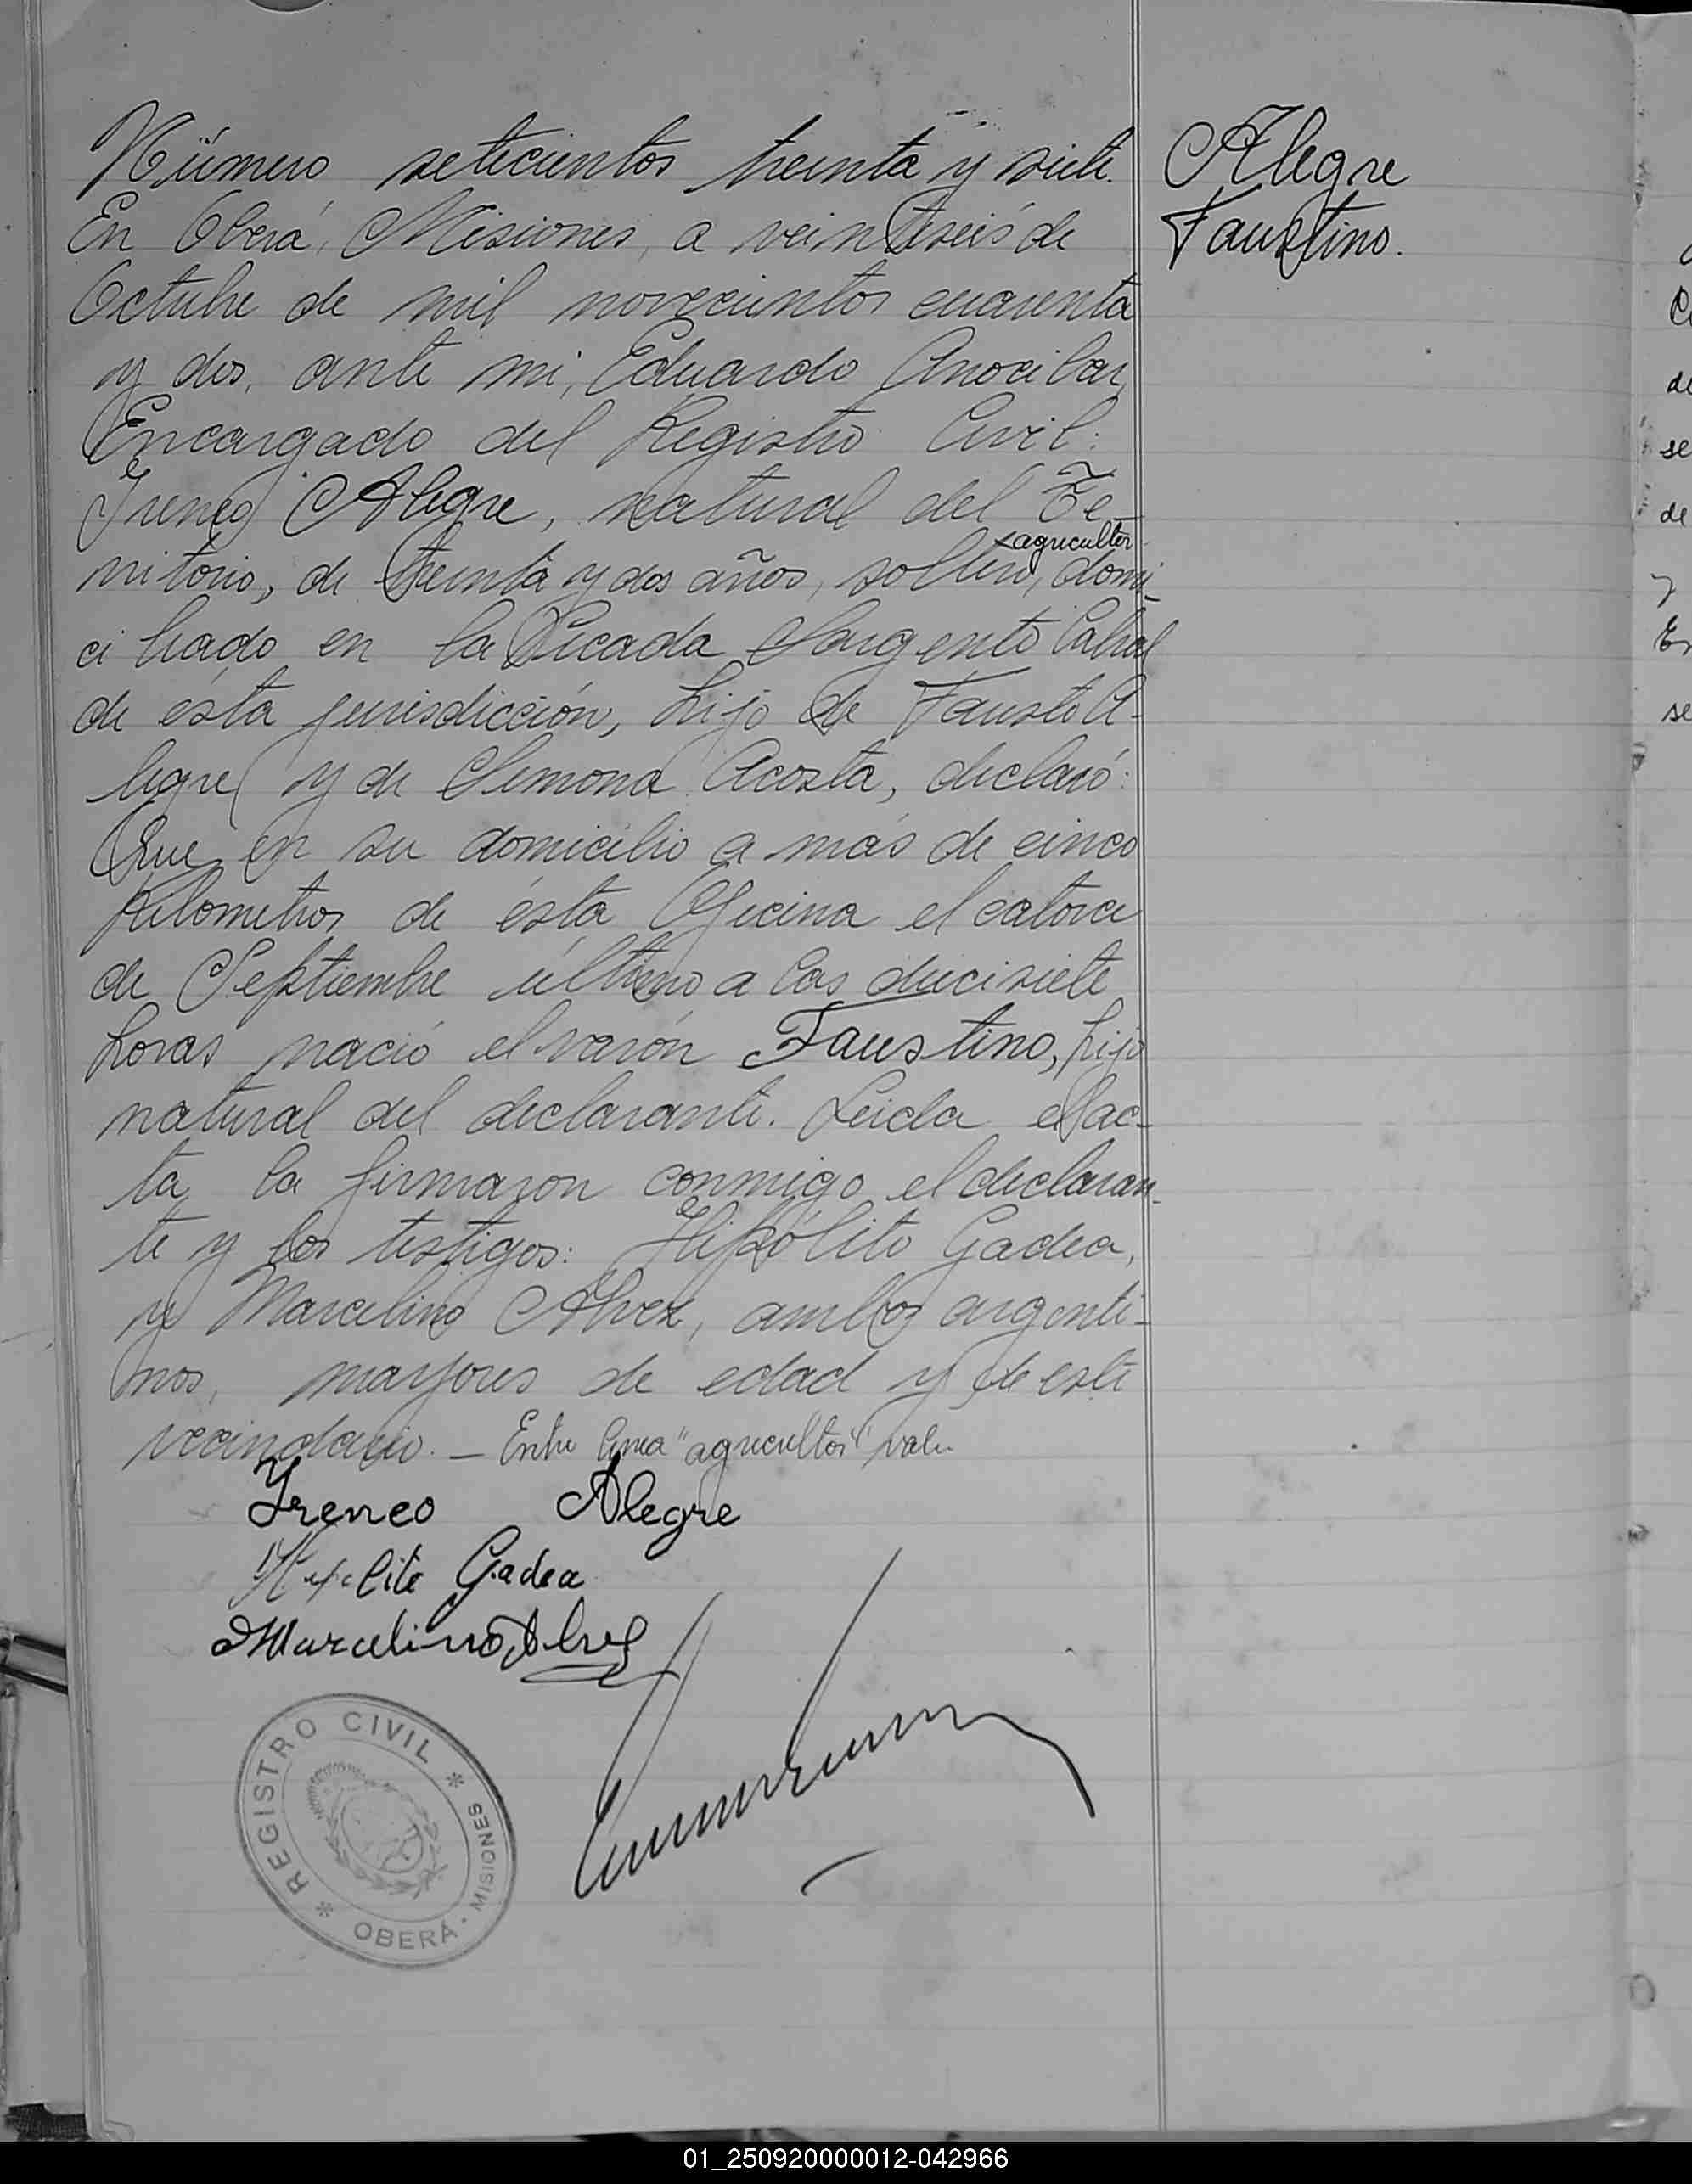 Número setecientos treinta y siete.
Alegre
Faustino.
En Oberá, Misiones, a veintiseis de
Octubre de mil novecientos cuarenta
y dos, ante mi, Eduardo
Encargado del Registro Civil:
Ireneo Alegre, natural del Te-
rritorio, de treinta y dos años, soltero, domi-
agricultor
ciliado en la Picada Sargento Cabral
de ésta jurisdicción, hijo de Fausto A-
legre y de Simona Acosta, declaró:
Que en su domicilio a más de cinco
Kilometros de ésta Oficina el catorce
de Septiembre último a las diecisiete
horas nació el varón Faustino, hijo
natural del declarante. Leida el ac-
ta la firmaron conmigo el declaran-
te y los testigos: Hipólito Gadea,
y Marcelino Alvez, ambos argenti-
nos, mayores de edad y de este
vecindario. — Entre linea "agricultor" vale
Yreneo Alegre
Hipolito Gadea
Marcelino Alvez
* REGISTRO CIVIL *
OBERÁ - MISIONES
01_250920000012-042966